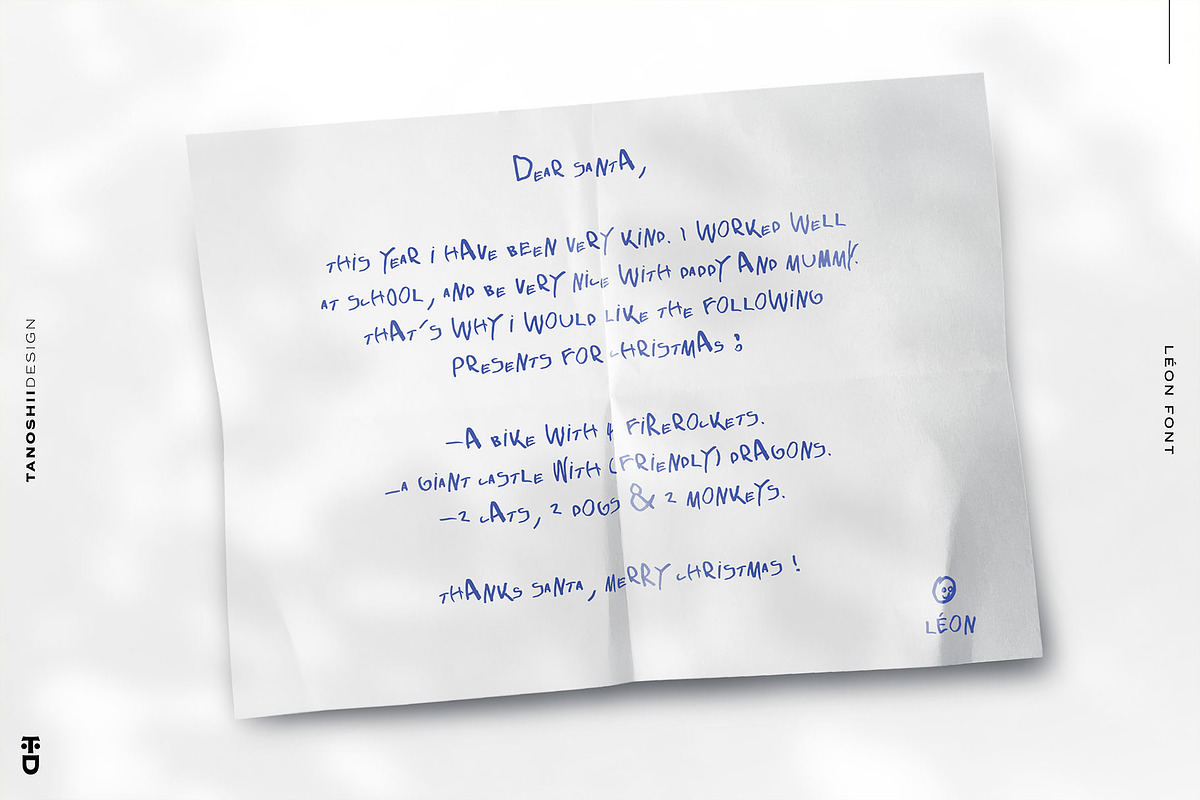 DEAR SANTA,
THIS YEAR I HAVE BEEN VERY KIND. I WORKED WELL
AT SCHOOL, AND BE VERY NICE WITH DADDY AND MUMMY.
THAT'S WHY I WOULD LIKE THE FOLLOWING
PRESENTS FOR CHRISTMAS :
—A BIKE WITH 4 FIREROCKETS.
—A GIANT CASTLE WITH (FRIENDLY) DRAGONS.
—2 CATS, 2 DOGS & 2 MONKEYS.
THANKS SANTA, MERRY CHRISTMAS !
LÉON
TANOSHIIDESIGN
LÉON FONT
TD